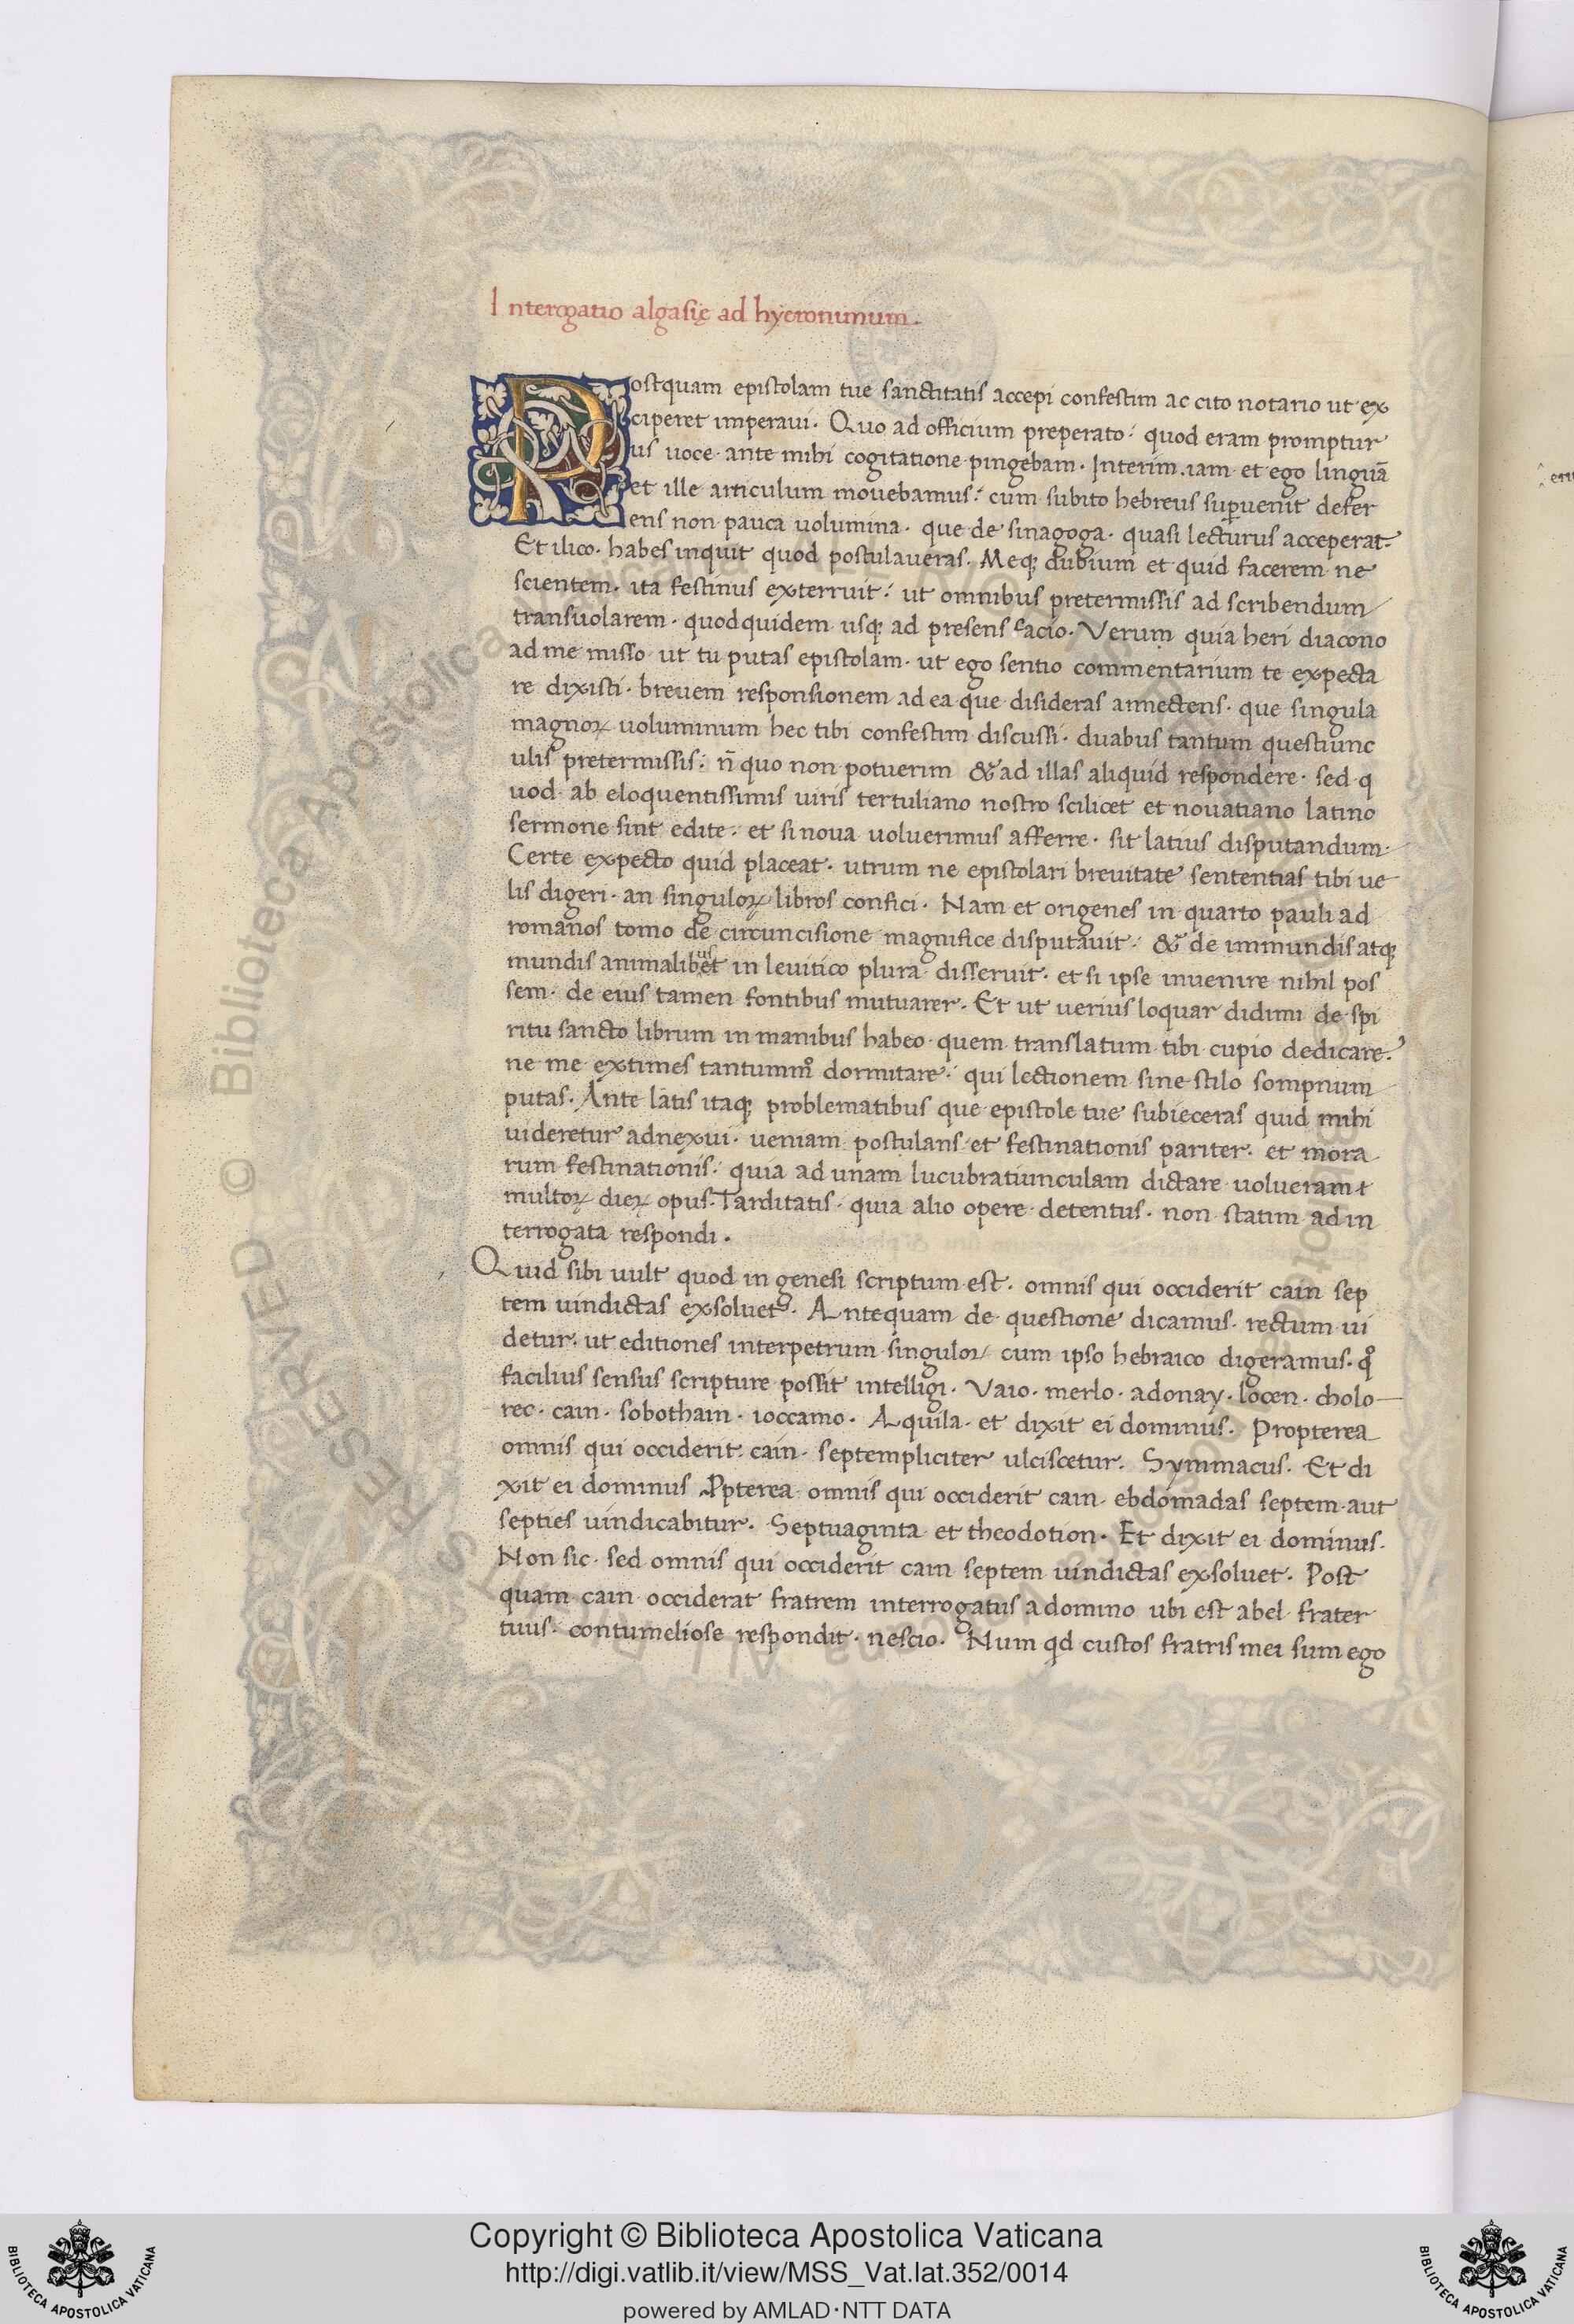 Interogatio algasię ad hyeronimum.
Postquam epistolam tue sanctitatis accepi confestim ac cito notario ut ex
ciperet imperaui. Quo ad officium preperato: quod eram promptur
us uoce ante mihi cogitatione pingebam. Interim iam et ego linguā
et ille articulum mouebamus: cum subito hebreus sup̱uenit defer
ens non pauca uolumina. que de sinagoga. quasi lecturus acceperat.
Et ilico. habes inquit quod postulaueras. Meqꝫ dubium et quid facerem ne
scientem. ita festinus exterruit: ut omnibus pretermissis ad scribendum
transuolarem. quodquidem usqꝫ ad presens facio. Verum quia heri diacono
ad me misso ut tu putas epistolam. ut ego sentio commentarium te expecta
re dixisti. breuem responsionem ad ea que disideras annectens. que singula
magnoꝝ uoluminum hec tibi confestim discussi. duabus tantum questiunc
ulis pretermissis: n̄ quo non potuerim & ad illas aliquid respondere. sed q
uod ab eloquentissimis uiris tertuliano nostro scilicet et nouatiano latino
sermone sint edite. et si noua uoluerimus afferre. sit latius disputandum.
Certe expecto quid placeat. utrum ne epistolari breuitate sententias tibi ue
lis digeri. an singuloꝝ libros confici. Nam et origenes in quarto pauli ad
romanos tomo de circuncisione magnifice disputauit: & de immundis atqꝫ
mundis animalibus et in leuitico plura disseruit. et si ipse inuenire nihil pos
sem. de eius tamen fontibus mutuarer. Et ut uerius loquar didimi de spi
ritu sancto librum in manibus habeo quem translatum tibi cupio dedicare.
ne me extimes tantummo̊ dormitare: qui lectionem sine stilo sompnum
putas. Ante latis itaqꝫ problematibus que epistole tue subieceras quid mihi
uideretur adnexui. ueniam postulans et festinationis pariter. et mora
rum festinationis: quia ad unam lucubratiunculam dictare uolueram
multoꝝ dieꝝ opus. Tarditatis. quia alio opere detentus. non statim ad in
terrogata respondi.
Quid sibi uult quod in genesi scriptum est. omnis qui occiderit cain sep
tem uindictas exsoluet. Antequam de questione dicamus. rectum ui
detur. ut editiones interpetrum singuloꝝ cum ipso hebraico digeramus. qͦ
facilius sensus scripture possit intelligi. Vaio. merlo. adonay. locen. cholo
rec. cain. sobothain. ioccamo. Aquila. et dixit ei dominus. Propterea
omnis qui occiderit cain. septempliciter ulciscetur. Symmacus. Et di
xit ei dominus Ꝓpterea omnis qui occiderit cain. ebdomadas septem aut
septies uindicabitur. Septuaginta et theodotion. Et dixit ei dominus.
Non sic. sed omnis qui occiderit cain septem uindictas exsoluet. Post
quam cain occiderat fratrem interrogatus a domino ubi est abel frater
tuus. contumeliose respondit. nescio. Num qd custos fratris mei sum ego
Copyright © Biblioteca Apostolica Vaticana
http://digi.vatlib.it/view/MSS_Vat.lat.352/0014
powered by AMLAD·NTT DATA
BIBLIOTECA APOSTOLICA VATICANA
BIBLIOTECA APOSTOLICA VATICANA